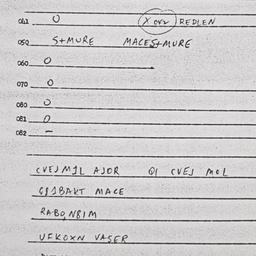 041 0 REDLEN
050 S+MURE MACES+MURE
060 0
070 0
080 0
081 0
082 -
CVEJMJL AJOR QI CVEJ MOL
MACE
RABO,N8IM
UFKOXN VASER